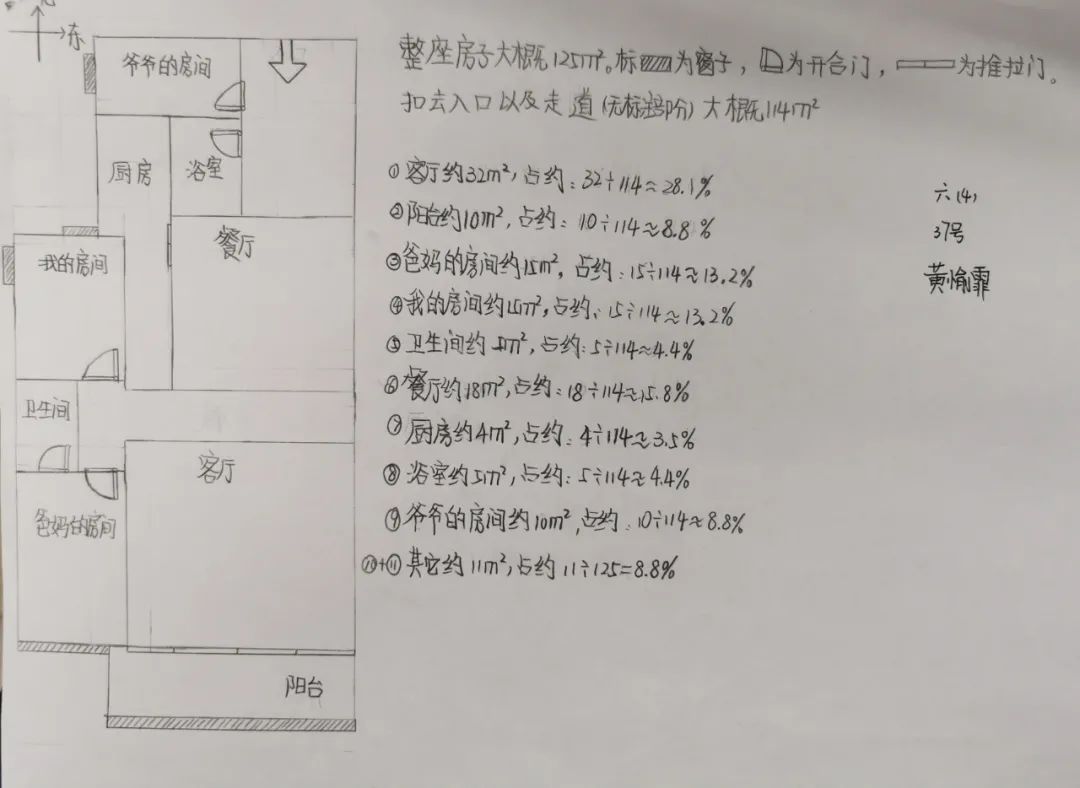 东
爷爷的房间
厨房
浴室
餐厅
我的房间
卫生间
客厅
爸妈的房间
阳台
整座房子大概125m²。标为窗子，为开合门，为推拉门。
扣去入口以及走道(无标部分)大概114m²
①客厅约32m²，占约：32÷114≈28.1%
②阳台约10m²，占约：10÷114≈8.8%
③爸妈的房间约15m²，占约：15÷114≈13.2%
④我的房间约15m²，占约：15÷114≈13.2%
⑤卫生间约5m²，占约：5÷114≈4.4%
⑥餐厅约18m²，占约：18÷114≈15.8%
⑦厨房约4m²，占约：4÷114≈3.5%
⑧浴室约5m²，占约：5÷114≈4.4%
⑨爷爷的房间约10m²，占约：10÷114≈8.8%
⑩+⑪其它约11m²，占约11÷125=8.8%
六(4)
37号
黄愉霏